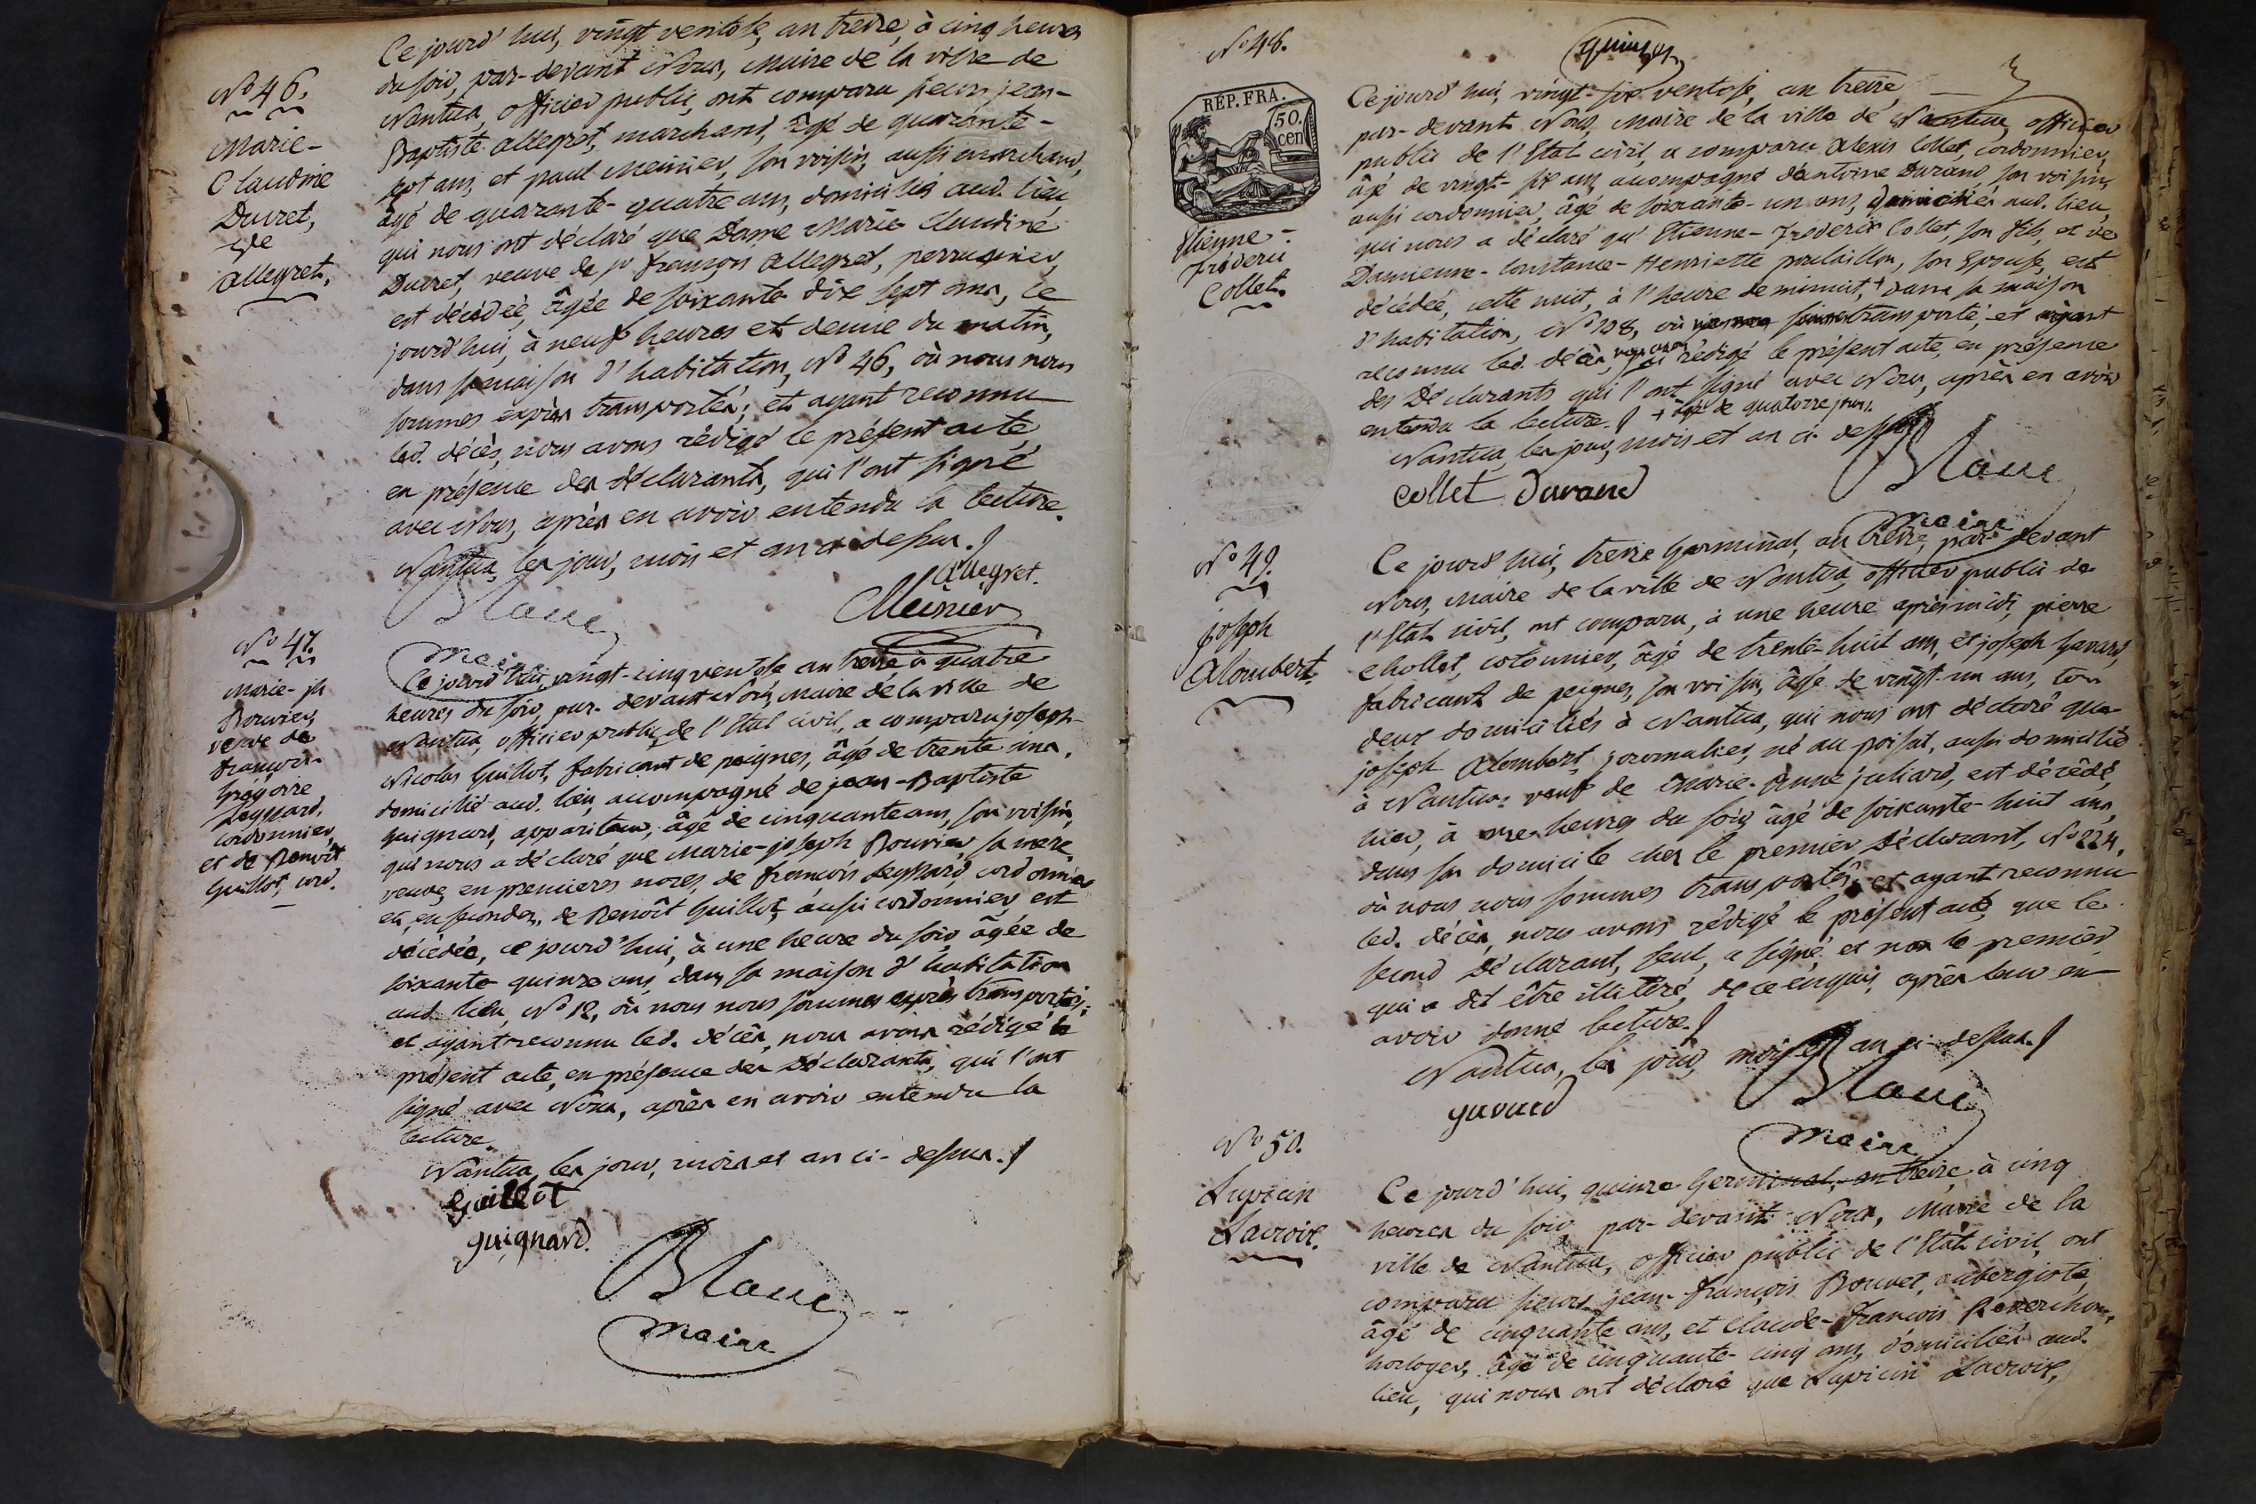 N° 46.
Marie-
Claudine
Ducret,
Ve
allegret.
Ce jourd'hui, vingt ventose, an treize, à cinq heures
du soir, par-devant Nous, Maire de la ville de
Nantua, officier public, ont comparu sieurs jean-
Baptiste allegret, marchand, âgé de quarante-
sept ans, et paul Meinier, son voisin, aussi marchand,
âgé de quarante-quatre ans, domiciliés aud. lieu,
qui nous ont déclaré que Dame Marie Claudine
Ducret, veuve de sr françois allegret, perruquier,
est décédée, âgée de soixante dix sept ans, ce
jourd'hui, à neuf heures et demie du matin,
dans sa maison d'habitation, N° 46, où nous nous
sommes exprès transportés; et ayant reconnu
led. décès, nous avons rédigé le présent acte,
en présence des déclarants, qui l'ont signé
avec Nous, après en avoir entendu la lecture.
Nantua, les jour, mois et an ci-dessus.
allegret.
Blanc
Meinier
maire
N° 47.
Marie-jh
Bouvier,
veuve de
françois-
Grégoire
cordonnier,
et de Benoit
Guillot, cord.
Ce jourd'hui, vingt-cinq ventose an treize à quatre
heures du soir, par-devant Nous, Maire de la ville de
Nantua, officier public de l'Etat civil, a comparu joseph-
Nicolas Guillot, fabricant de peignes, âgé de trente ans,
domicilié aud. lieu, accompagné de jean-Baptiste
guignard, appariteur, âgé de cinquante ans, son voisin,
qui nous a déclaré que Marie-joseph Bouvier sa mere,
veuve, en premieres noces, de françois cordonnier
et, en secondes, de Benoît Guillot, aussi cordonnier est
décédée, ce jourd'hui, à une heure du soir, âgée de
soixante quinze ans, dans sa maison d'habitation
aud. lieu, N° 12, où nous nous sommes exprès transportés;
et ayant reconnu led. décès, nous avons rédigé le
présent acte, en présence des Déclarants, qui l'ont
signé avec Nous, après en avoir entendu la
lecture.
Nantua, les jour, mois et an ci-dessus.
Guillot
guignard.
Blanc
maire
quinze
N° 48.
RÉP. FRA.
50.
cen
Etienne-
fréderic
Collet.
Ce jourd'hui, vingt-six ventose, an treize,
par-devant Nous, Maire de la ville de Nantua, officier
public de l'Etat civil, a comparu Alexis Collet, cordonnier,
âgé de vingt-six ans, accompagné d'antoine Durand, son voisin,
aussi cordonnier, âgé de soixante-un ans, domiciliés aud. lieu,
qui nous a déclaré qu'Etienne-fréderic Collet, son fils, et de
Damienne-Constance-Henriette poulaillon, son Epouse, est
décédée, cette nuit, à l'heure de minuit, + dans sa maison
d'habitation, N° 108, où transporté, et ayant
reconnu led. décès, rédigé le présent acte, en présence
des Déclarants qui l'ont signé avec Nous, après en avoir
entendu la lecture. + âgé de quatorze jours.
Nantua, les jour, mois et an ci-dessus
Collet Durand
Blanc
maire
N° 49.
joseph
Alombert.
Ce jourd'hui, treize Germinal, an treize, par-devant
Nous, Maire de la ville de Nantua, officier public de
l'Etat civil, ont comparu, à une heure après midi, pierre
chollet, cotonnier, âgé de trente-huit ans, et joseph Gavard,
fabricant de peignes, son voisin, âgé de vingt-un ans, tous
deux domiciliés à Nantua, qui nous ont déclaré que
joseph Alombert, journalier, né au poisat, aussi domicilié
à Nantua, veuf de Marie-Anne juliard, est décédé,
hier, à onze heures du soir, âgé de soixante-huit ans,
dans son domicile chez le premier Déclarant, N° 224,
où nous nous sommes transportés; et ayant reconnu
led. décès, nous avons rédigé le présent acte, que le
second Déclarant, seul, a signé, et non le premier,
qui a dit être illitéré, de ce enquis, après leur en
avoir donné lecture.
Nantua, les jour, mois et an ci-dessus.
gavard
Blanc
maire
N° 50.
Lupicin
Lacroix.
Ce jourd'hui, quinze Germinal, an treize, à cinq
heures du soir, par-devant Nous, Maire de la
ville de Nantua, officier public de l'Etat civil, ont
comparu sieurs jean-françois Bouvet, aubergiste,
âgé de cinquante ans, et claude-françois Reverchon,
horloger, âgé de cinquante-cinq ans, domiciliés aud.
lieu, qui nous ont déclaré que Lupicin Lacroix,